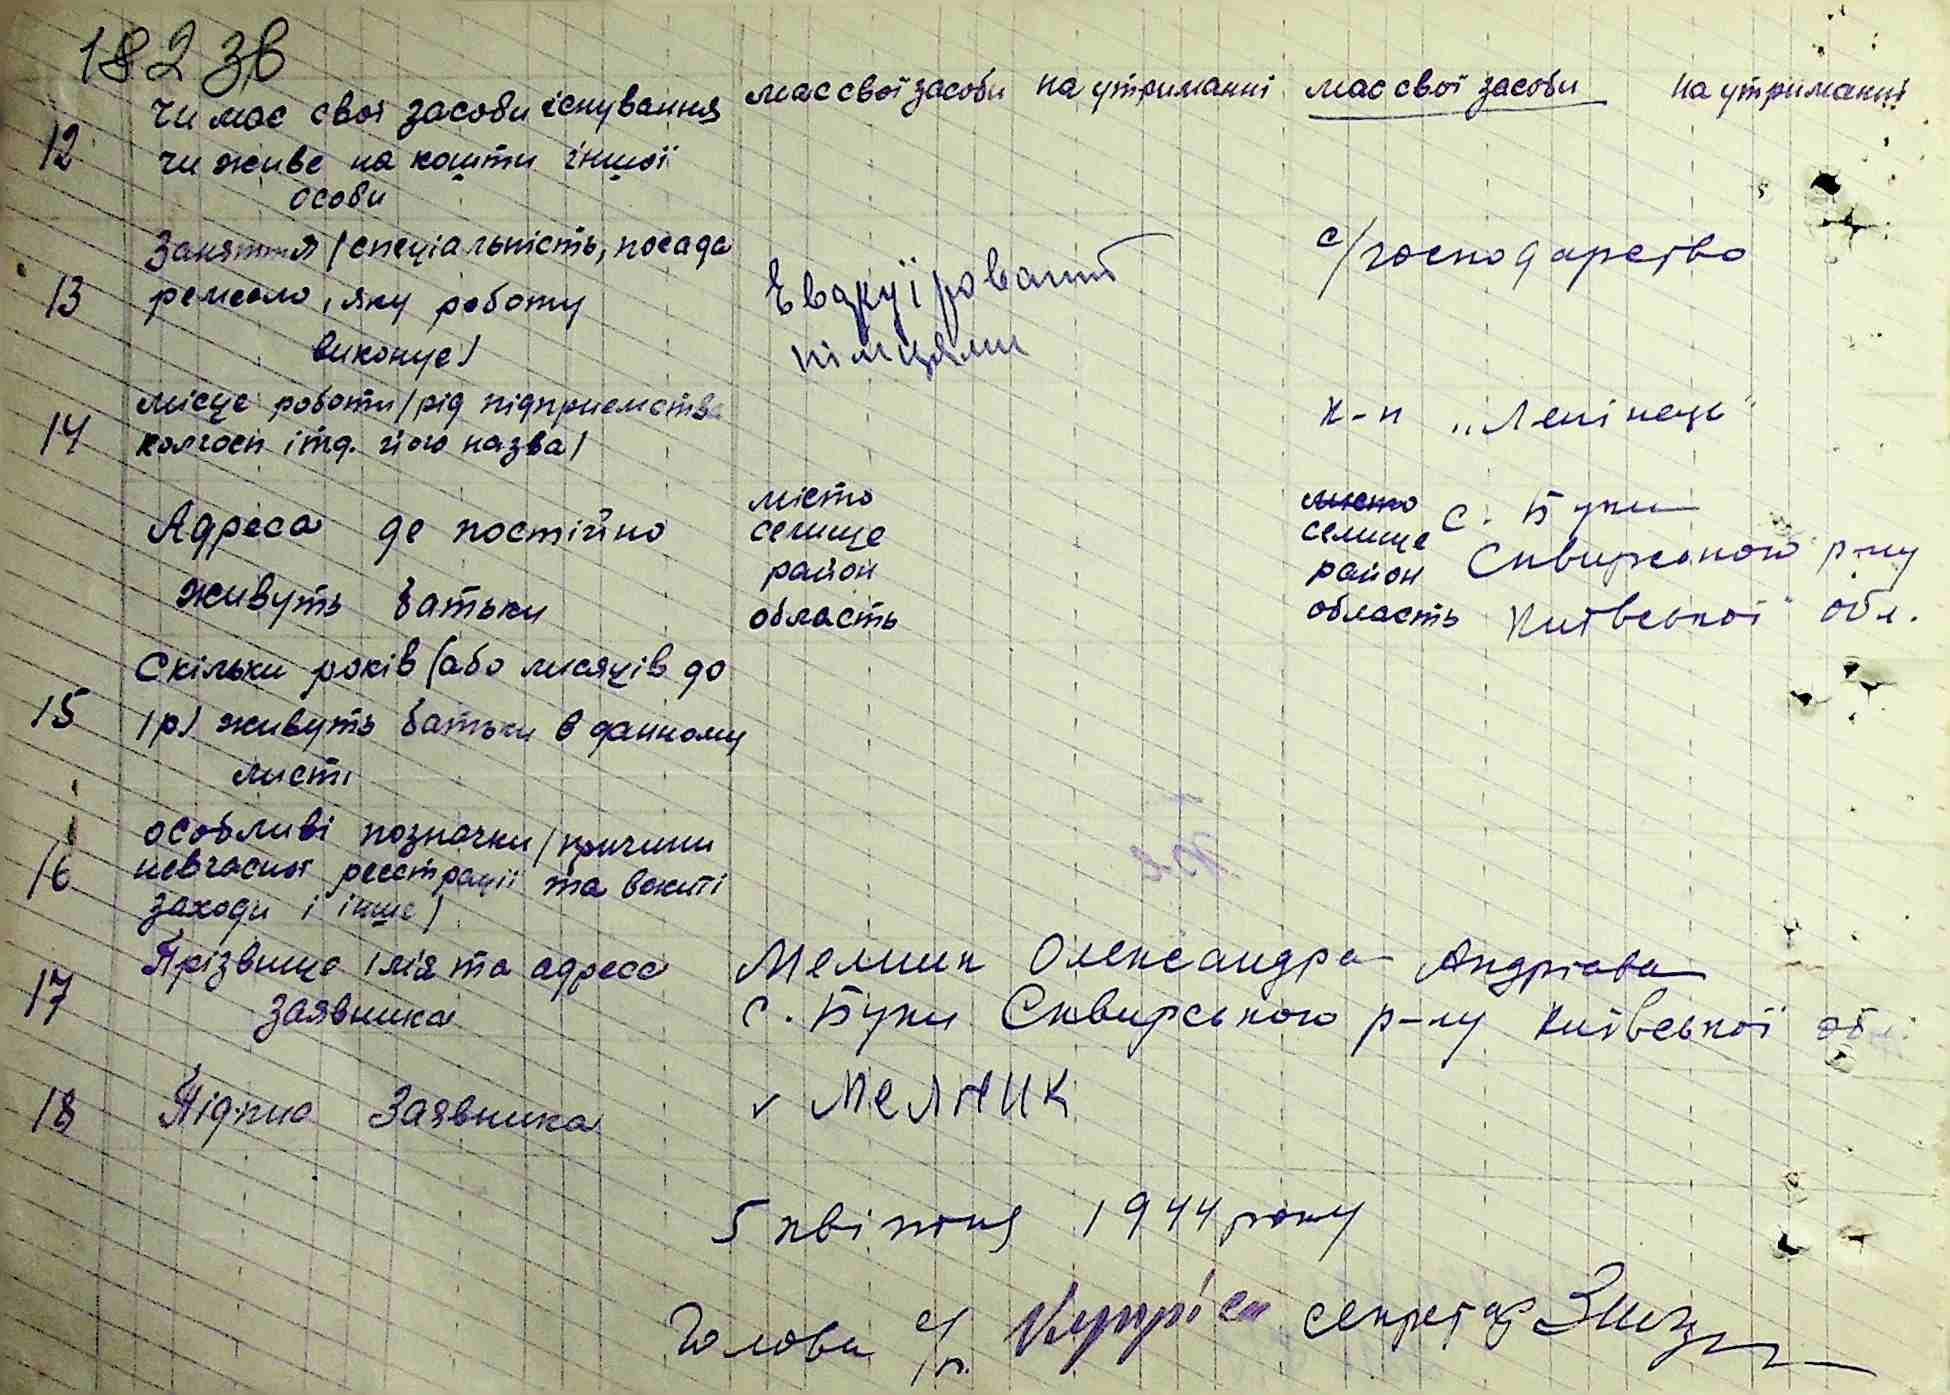 182 зв
12 Чи має свої засоби існування має свої засоби на утриманні має свої засоби на утриманні
чи живе на кошти іншої
особи
Заняття /спеціальність, посада с/господарство
13 ремесло, яку роботу Евакуїрований
виконує/ німцями
14 місце роботи /рід підприємства к-п „Ленінець"
колгосп і тд. його назва/
Адреса де постійно місто місто с. Буки
селище селище Сквирського р-ну
живуть батьки район район
область область Київської обл.
Скільки років (або місяців до
15 /р/ живуть батьки в данному
місті
особливі позначки /причини
16 невчасної реєстрації та вжиті
заходи і інше/
17 Прізвище ім'я та адреса Мельник Олександра Андріївна
заявника с. Буки Сквирського р-ну Київської обл.
18 Підпис Заявника v Мелник
5 квітня 1944 року
Голова с/р. секретар